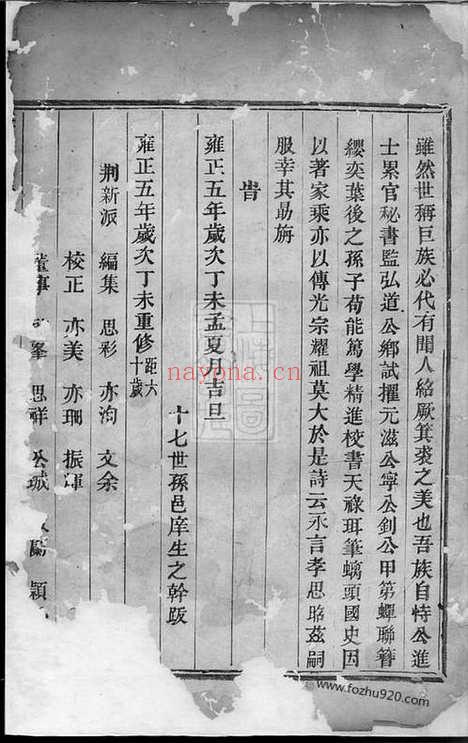 雖然世稱巨族必代有聞人紹厥箕裘之美也吾族自恃公進
士累官秘書監弘道公鄉試擢元滋公寧公釗公甲第蟬聯簪
纓奕葉後之孫子苟能篤學精進校書天祿珥筆螭頭國史因
以著家乘亦以傳光宗耀祖莫大於是詩云永言孝思昭茲嗣
服幸其勗旃
旹
雍正五年歲次丁未孟夏月吉旦
十七世孫邑庠生之幹跋
雍正五年歲次丁未重修距六十歲
荆新派 編集 思彩 亦洵 文余
校正 亦美 亦珊 振運
董事 峯 思祥 公城 陽 穎
nayona.cn
www.fozhu920.com